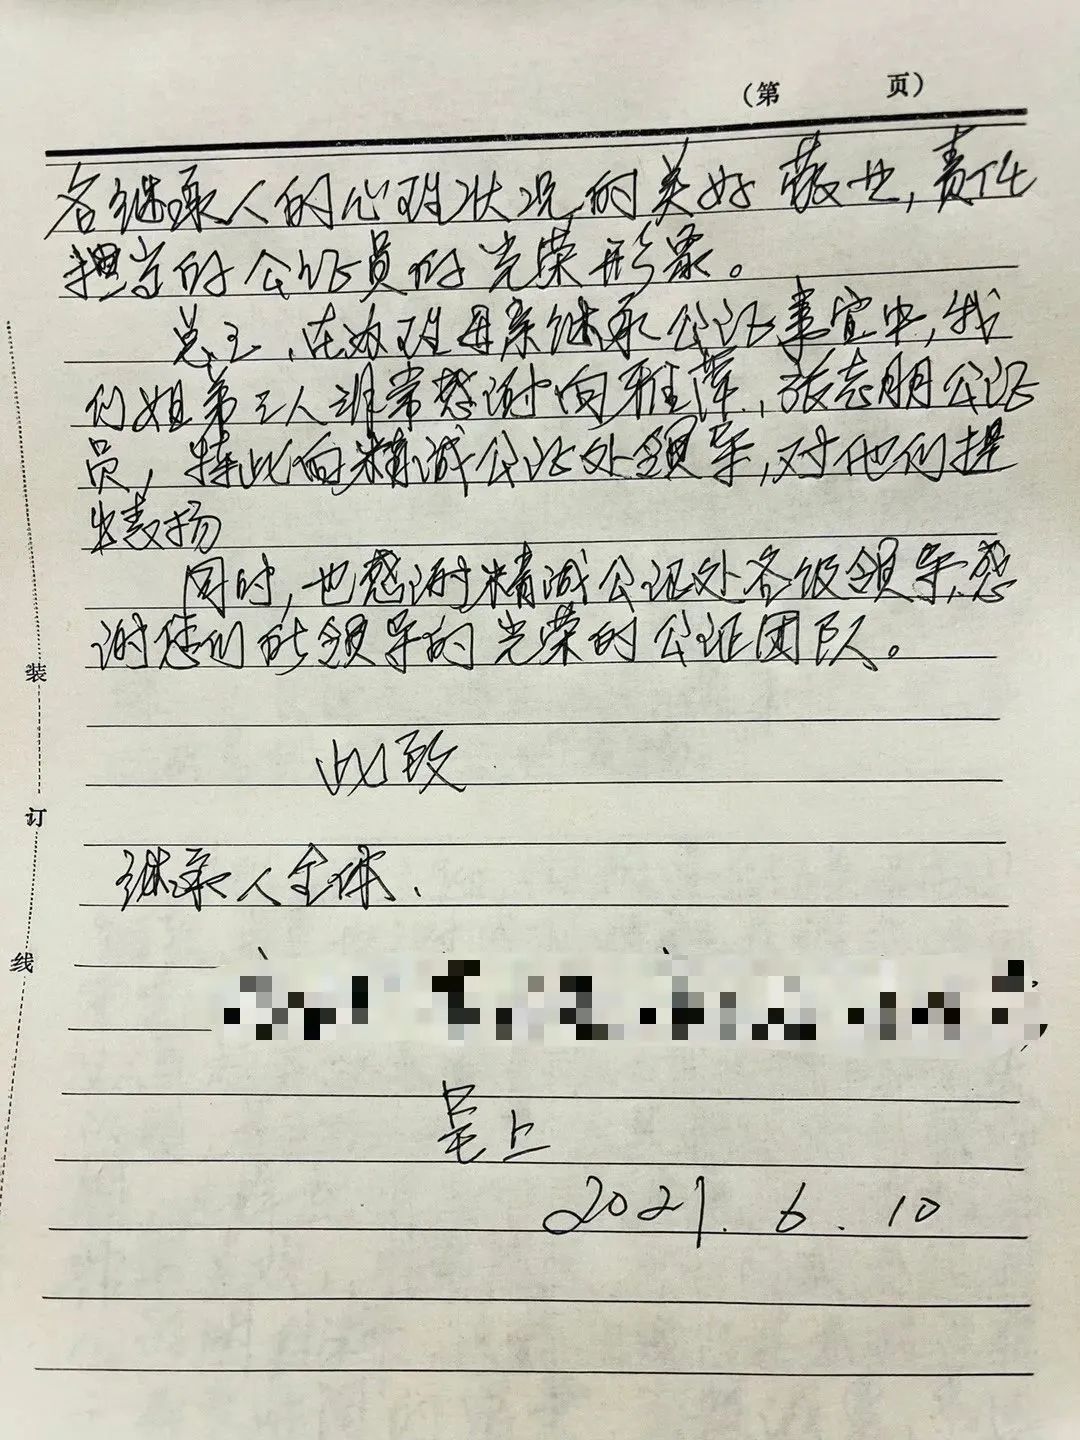 （第 页）
各继承人的心理状况,的美好敬业,责任
担当的公证员的光荣形象。
总之,在办理母亲继承公证事宜中,我
们姐弟三人非常感谢向雅萍,张志明公证
员,特此向精诚公证处领导,对他们提
出表扬
同时,也感谢精诚公证处各级领导,感
谢您们所领导的光荣的公证团队。
此致
继承人全体.
呈上
2021.6.10
装
订
线